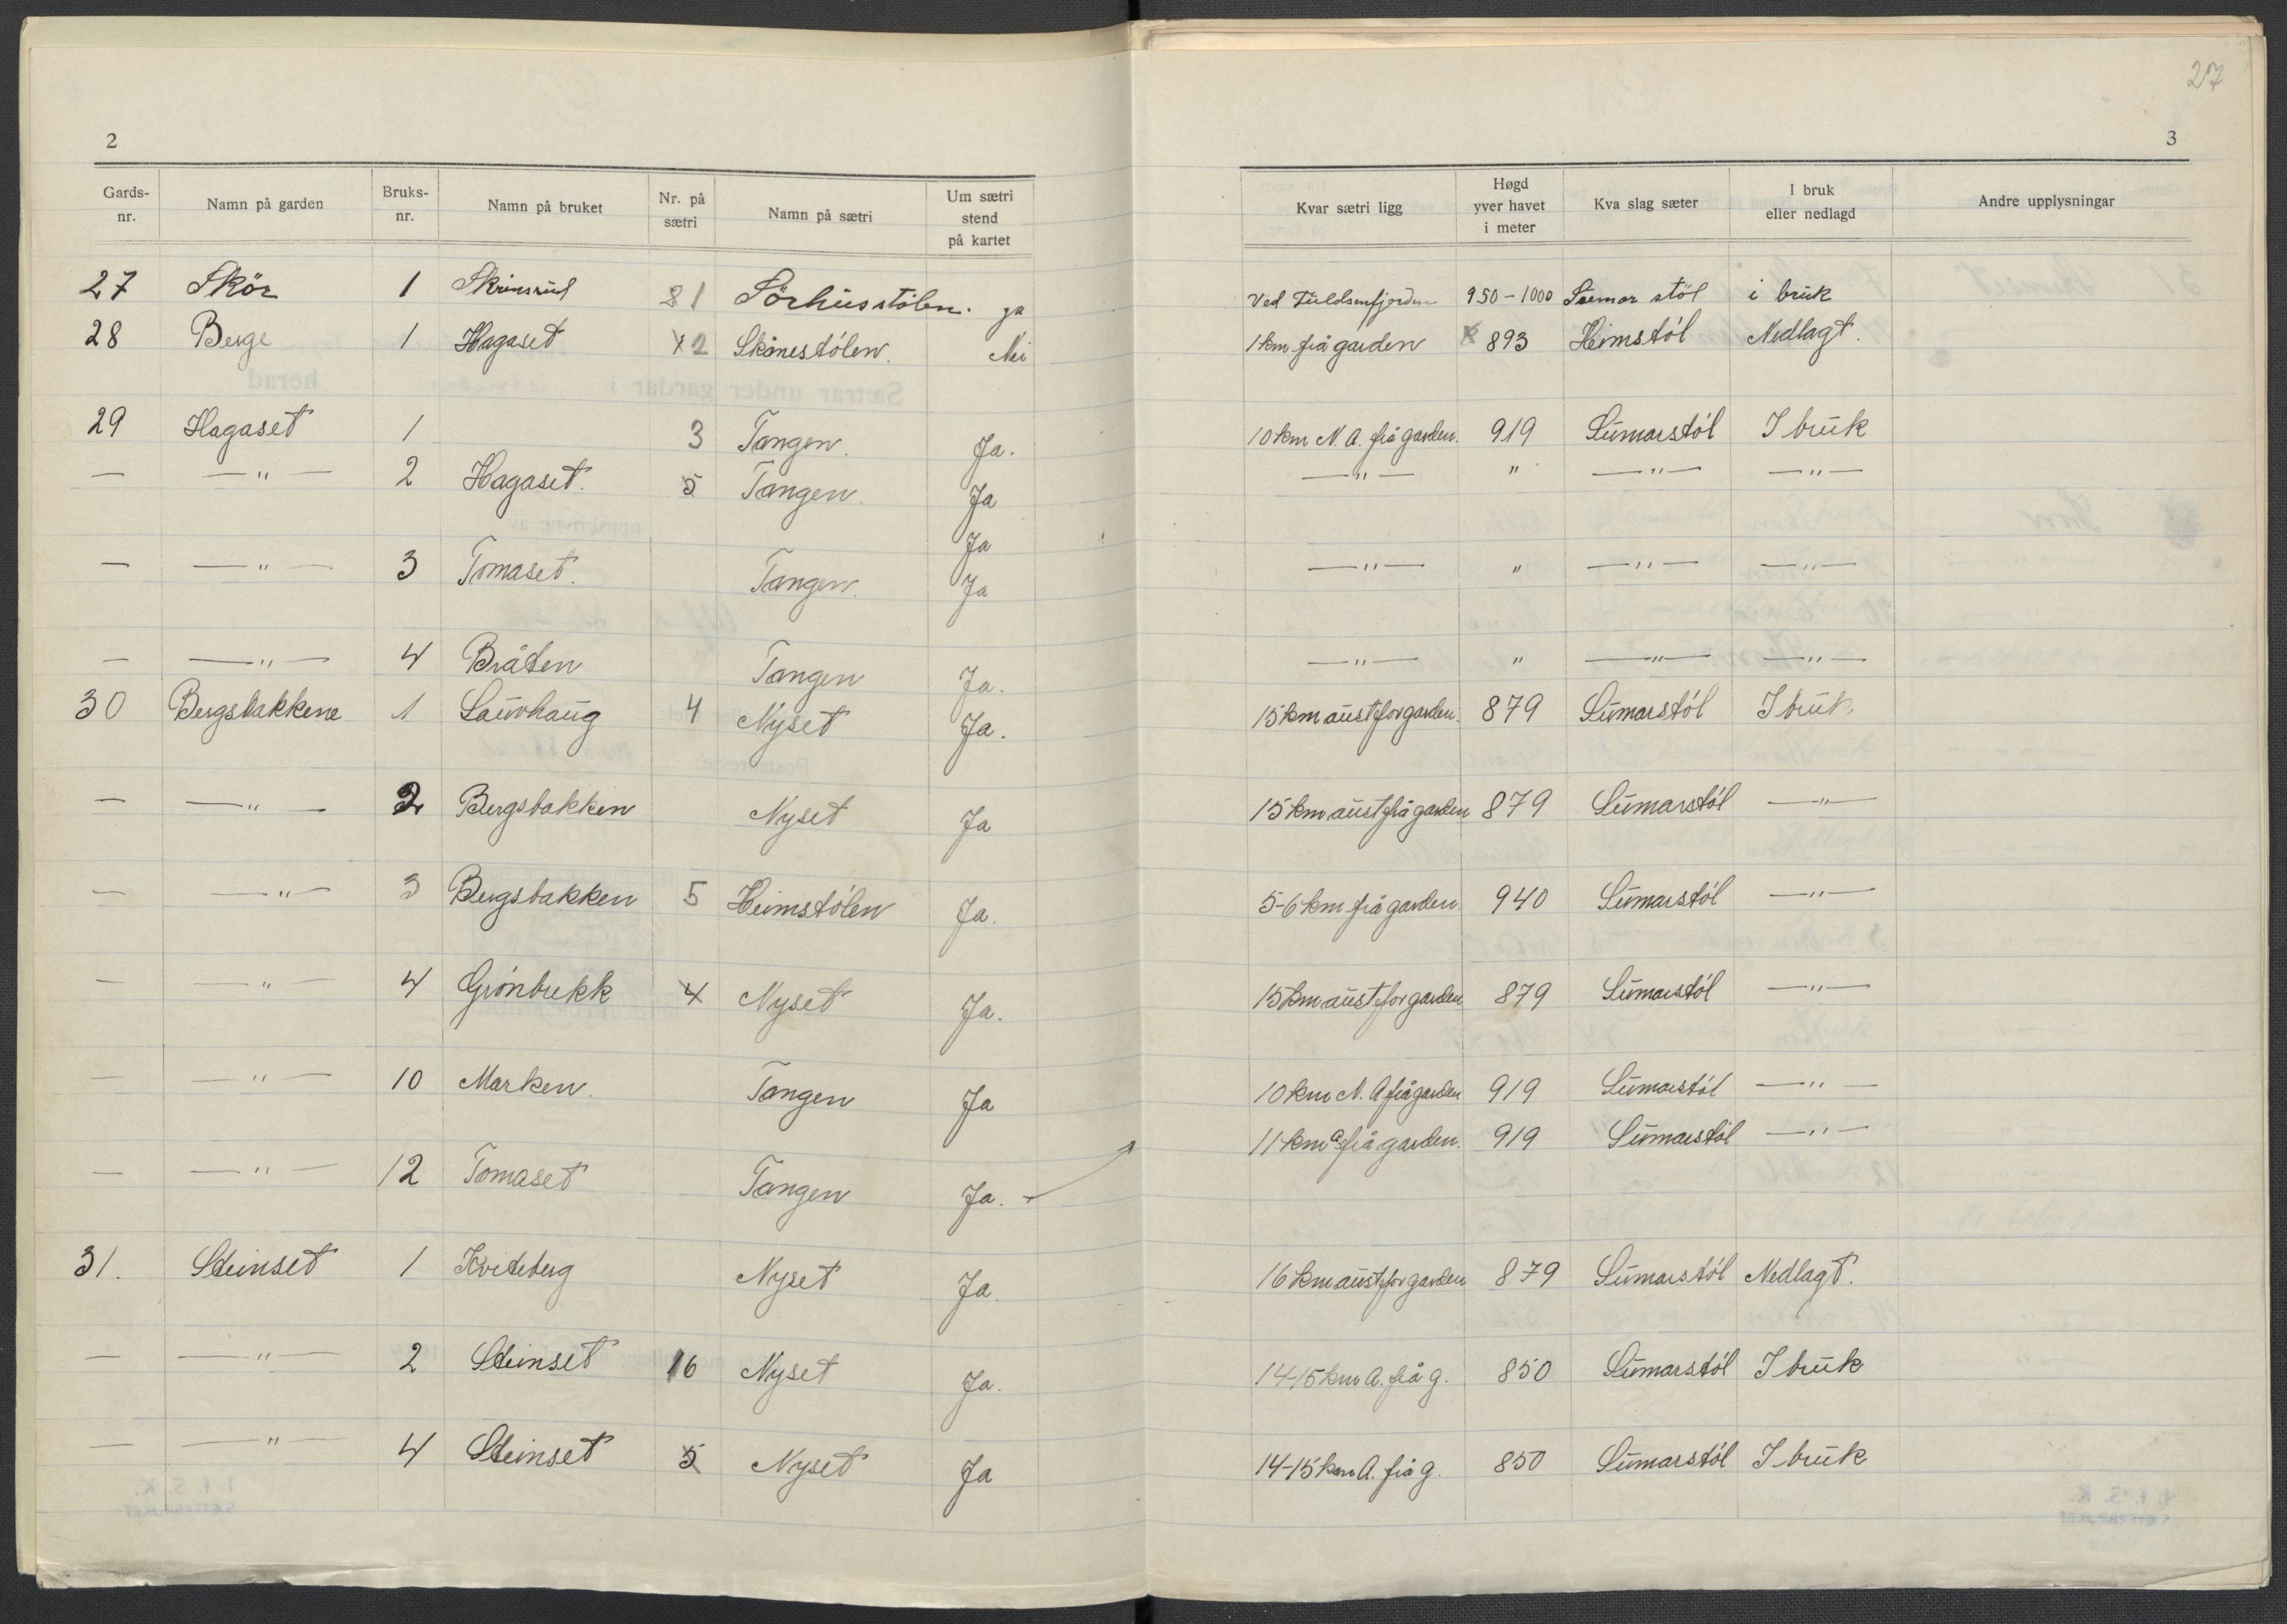 27
2
3
Gards-nr. Namn på garden Bruks-nr. Namn på bruket Nr. på sætri Namn på sætri Um sætri stend på kartet Kvar sætri ligg Høgd yver havet i meter Kva slag sæter I bruk eller nedlagd Andre upplysningar
27 Skör 1 Skrinsrud 1 Sörhusstölen. ja Ved 950-1000 Sumar stöl i bruk
28 Berge 1 Hagaset 2 Skinestólen. Nei 1 km frå garden 893 Heimstól Nedlagt.
29 Hagaset 1 3 Tangen. Ja. 10 km N.A. frå garden. 919 Sumarstól I bruk
— —"— 2 Hagaset. 5 Tangen. Ja —"— " —"— —"—
Ja
— —"— 3 Tomaset. Tangen. Ja —"— " —"— —"—
— —"— 4 Bråten Tangen Ja. —"— " —"— —"—
30 Bergsbakkene 1 Lauvhaug 4 Nyset Ja. 15 km aust for garden. 879 Sumarstól I bruk.
— —"— 2 Bergsbakken Nyset Ja 15 km aust frå garden 879 Sumarstól —"—
— —"— 3 Bergsbakken 5 Heimstólen Ja. 5-6 km frå garden. 940 Sumarstól —"—
— —"— 4 Grónbrekk 4 Nyset Ja. 15 km aust for garden 879 Sumarstól —"—
— —"— 10 Marken. Tangen Ja 10 km N.A frå garden 919 Sumarstól —"—
— —"— 12 Tomaset Tangen Ja. 11 km a. frå garden. 919 Sumarstól —"—
31. Steinset 1 Kviteberg Nyset Ja. 16 km aust for garden 879 Sumarstól Nedlagt.
— —"— 2 Steinset 16 Nyset Ja. 14-15 km A. frå g. 850 Sumarstól I bruk
— —"— 4 Steinset 5 Nyset Ja 14-15 km A. frå g. 850 Sumarstól I bruk